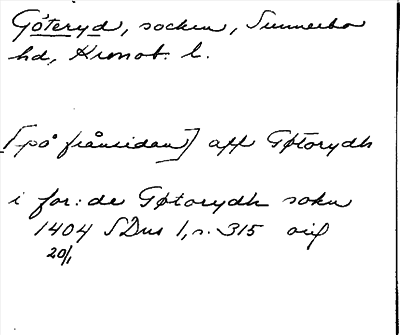 Göteryd, socken, Sunnerbo
hd, Kronob. l.
[på frånsidan] aff Gøtorydh
i for: de Gøtorydh sokn
1404 SDns 1, s. 315 orig
20/1